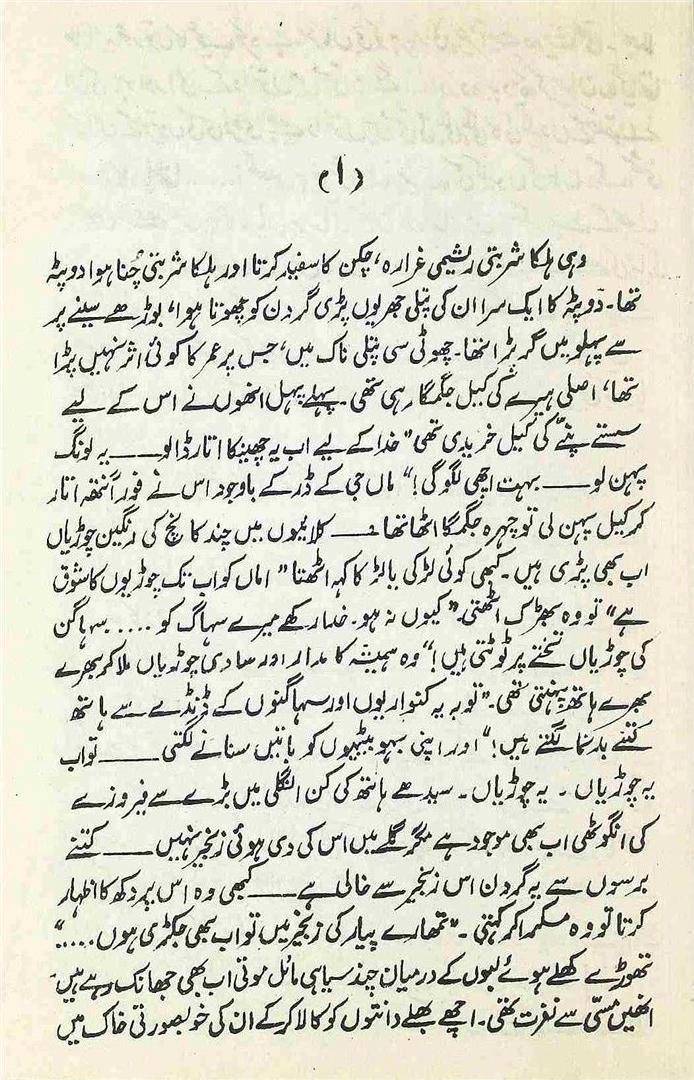 (۱)
وہی ہلکا شربتی ریشمی غرارہ، چکن کا سفید کرتا اور ہلکا شربتی چُنا ہوا دوپٹہ
تھا۔ دوپٹہ کا ایک سرا ان کی پتلی جھریوں پڑی گردن کو چھوتا ہوا، بوڑھے سینے پر
سے پہلو میں گر پڑا تھا۔ چھوٹی سی پتلی ناک میں، جس پر عمر کا کوئی اثر نہیں پڑا
تھا، اصلی ہیرے کی کیل جگمگا رہی تھی۔ پہلے پہل انھوں نے اس کے لیے
سستے پنّے کی کیل خریدی تھی "خدا کے لیے اب یہ چھینکا اتار ڈالو —— یہ لونگ
پہن لو —— بہت اچھی لگو گی!" ماں جی کے ڈر کے باوجود اس نے فوراً نتھ اتار
کر کیل پہن لی تو چہرہ جگمگا اٹھا تھا —— کلائیوں میں چند کانچ کی رنگین چوڑیاں
اب بھی پڑی ہیں۔ کبھی کوئی لڑکی یا لڑکا کہہ اٹھتا "اماں کو اب تک چوڑیوں کا شوق
ہے" تو وہ بھڑک اٹھتی۔ "کیوں نہ ہو۔ خدا رکھے میرے سہاگ کو ..... سہاگن
کی چوڑیاں تختے پر ٹوٹتی ہیں!" وہ ہمیشہ کامدار اور سادی چوڑیاں ملا کر بھرے
بھرے ہاتھ پہنتی تھی۔ "توبہ یہ کنواریوں اور سہاگنوں کے ڈنڈے سے ہاتھ
کتنے بدنما لگتے ہیں!" اور اپنی بہو بیٹیوں کو باتیں سنانے لگتی —— تو اب
یہ چوڑیاں ۔ یہ چوڑیاں ۔ سیدھے ہاتھ کی کن انگلی میں بڑے سے فیروزے
کی انگوٹھی اب بھی موجود ہے مگر گلے میں اس کی دی ہوئی زنجیر نہیں —— کتنے
برسوں سے یہ گردن اس زنجیر سے خالی ہے —— کبھی وہ اس پر دکھ کا اظہار
کرتا تو وہ مسکرا کر کہتی ۔ "تمھارے پیار کی زنجیر میں تو اب بھی جکڑی ہوں....."
تھوڑے کھلے ہوئے لبوں کے درمیان چند سیاہی مائل موتی اب بھی جھانک رہے ہیں۔
انھیں مسّی سے نفرت تھی۔ اچھے بھلے دانتوں کو کالا کر کے ان کی خوبصورتی خاک میں